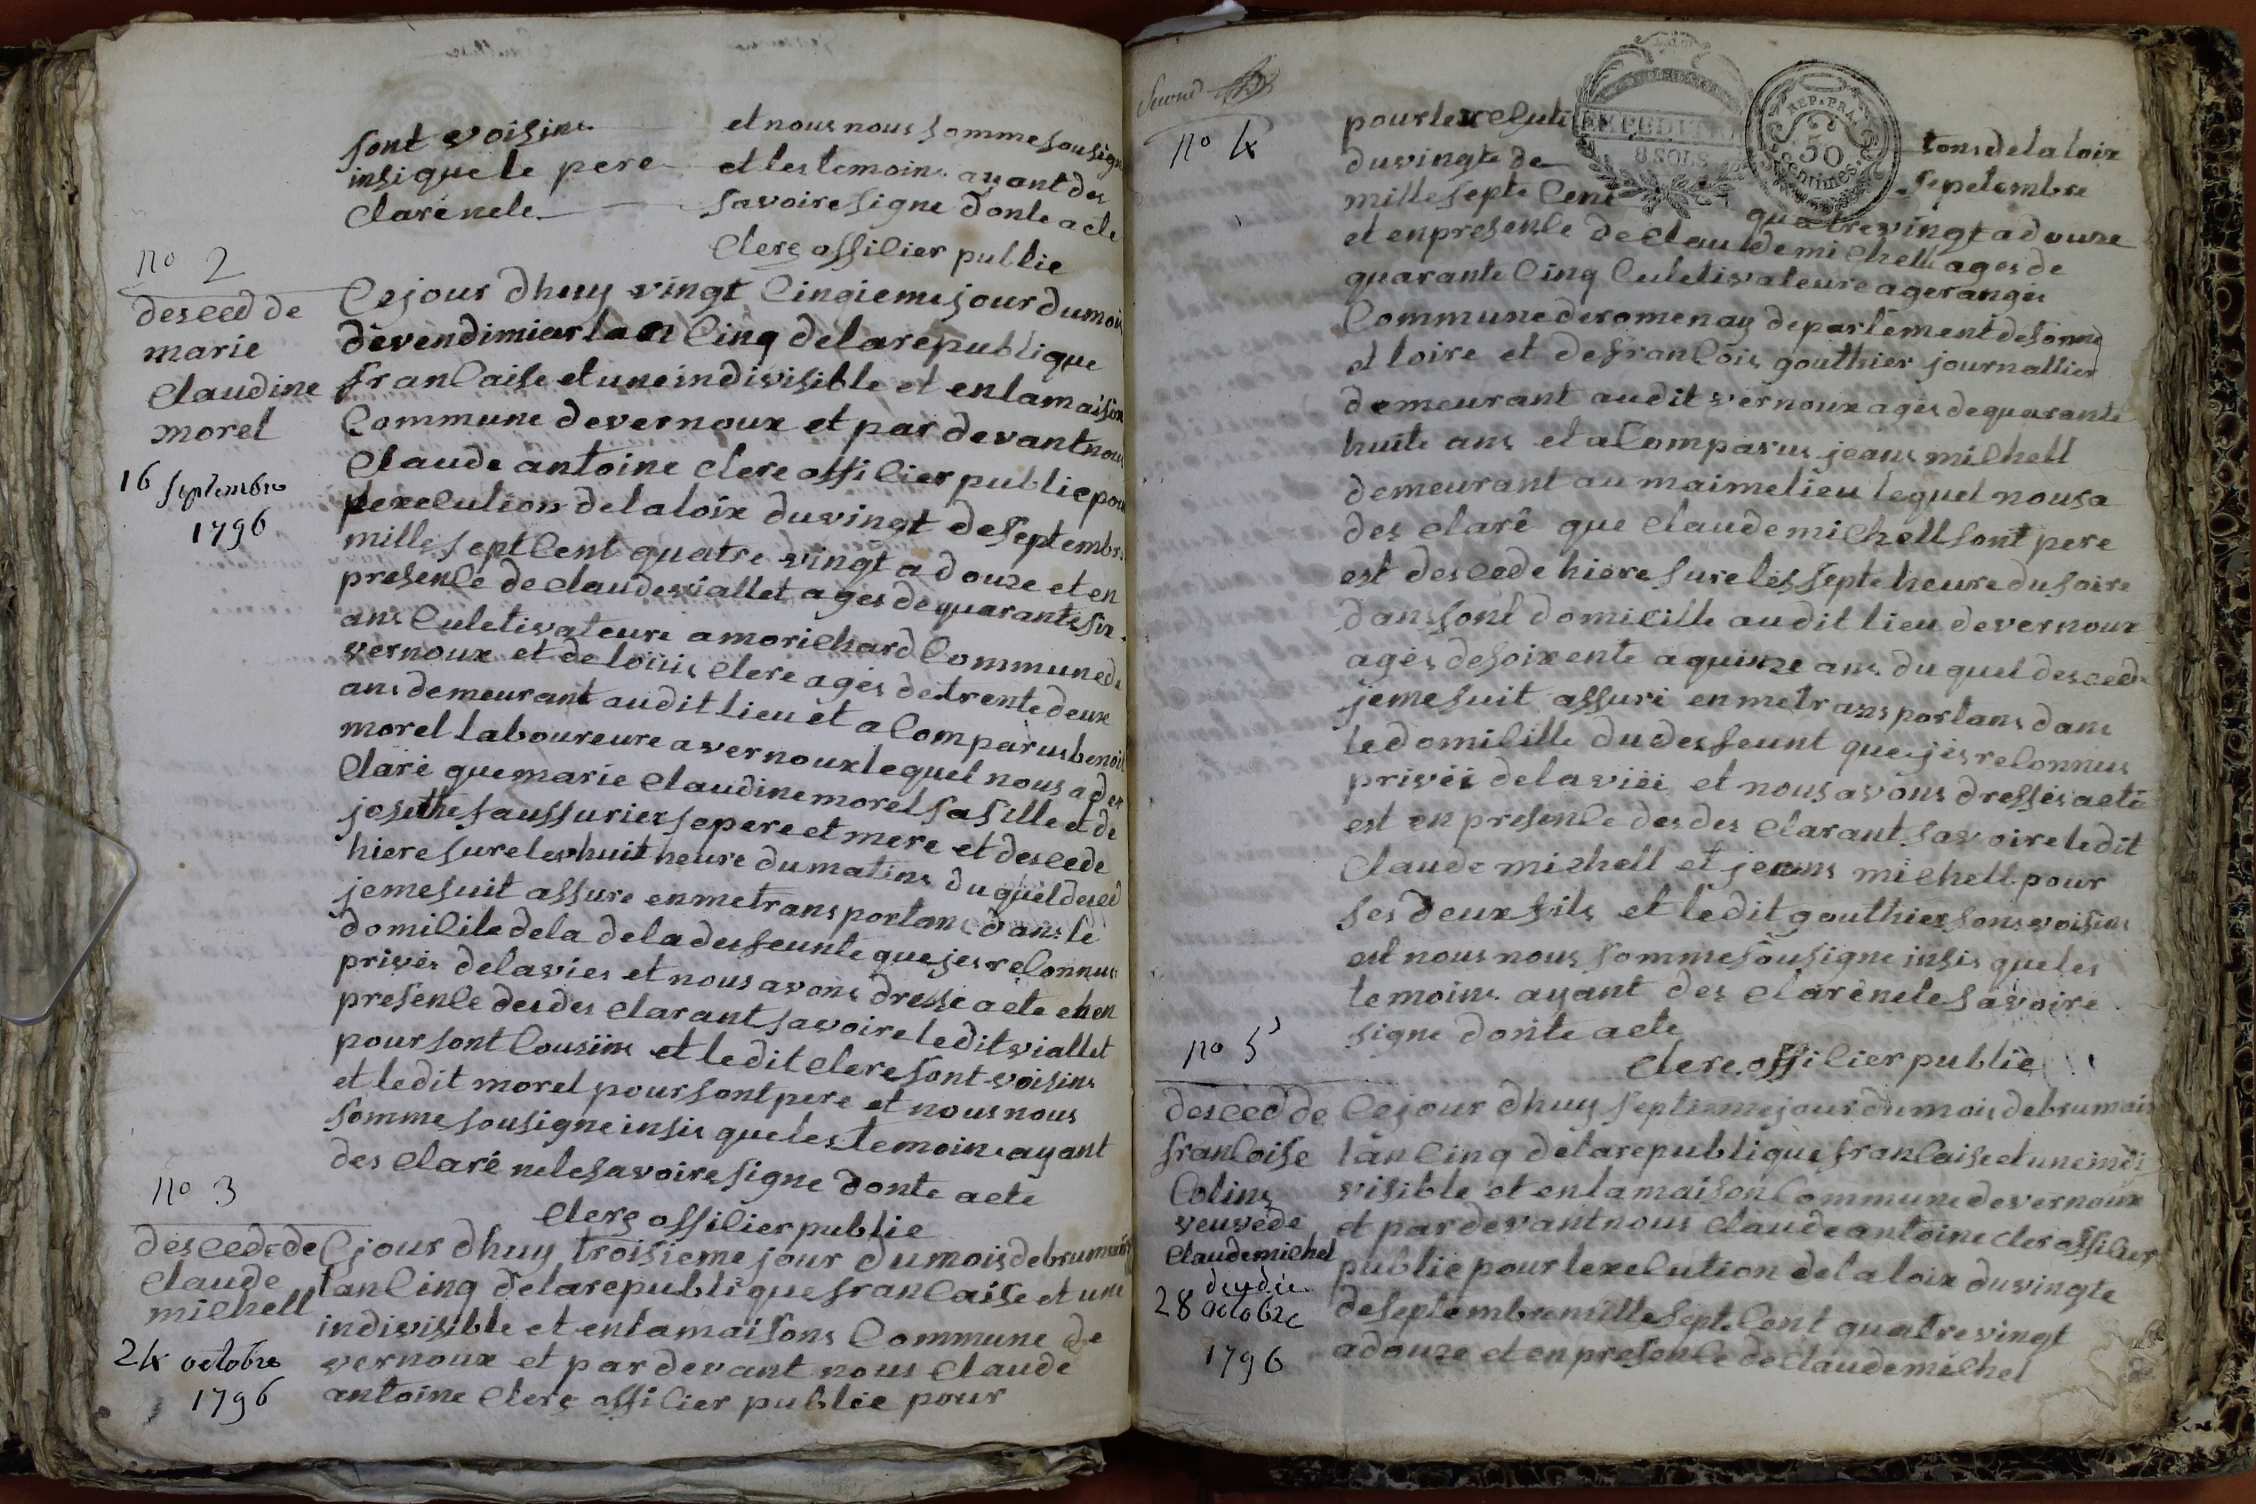 sont voisins et nous nous somme sousigne
insi que le pere et les temoins ayant des
clare nele savoire signe donte acte
Clerc offilier publie
no 2
desced de
marie
claudine
morel
16 septembre
1796
Cejour dhuy vingt Cinqieme jour du mois
de vendimier lan Cinq de la republique
franCaise et une indivisible et en la maison
Commune de vernoux et par devant nous
Claude antoine clerc offilier publie pour
lexelution de la loix du vingt de septembre
mille sept Cent quatre vingt a douze et en
presenle de claude viallet ages de quarante six
ans Culetivateure a morichard Commune de
vernoux et de louis clerc ages de trente deux
ans demeurant audit lieu et a Comparus benoit
morel laboureure a vernoux lequel nous a des
Claré que marie Claudine morel sa fille et de
josethe faussurier se pere et mere et descede
hiere sure les huit heure du matins du quel desced
je me suit assure en me transportans dans le
domilile de la de la desfeunte que jes reConnus
privés de la vies et nous avons dresse acte et en
presenle des des clarant savoire ledit viallet
pour sont Cousins et ledit clerc sont voisins
et ledit morel pour sont pere et nous nous
somme sousigne insis que les temoins ayant
des claré nele savoire signe donte acte
Clerc offilier publie
no 3
descede de
Claude
milhell
24 octobre
1796
Cjour dhuy troisieme jour du mois de brumaire
lan Cinq de la republique franCaise et une
indivisible et en la maisons Commune de
vernoux et par devant nous Claude
antoine Clerc offilier publie pour
second
no 4
pour lexeluti tons de la loix
du vingte de sepetembre
mille septe Cent quatre vingt a douze
et en presenle de claude milhell ages de
quarante Cinq Culetivateure a geranges
Commune de romenay departement de sonne
et loire et de franCois gouthier journallier
demeurant audit vernoux ages de quarante
huite ans et a Comparus jeans milhell
demeurant au maime lieu lequel nous a
des claré que claude milhell sont pere
est descede hiere sure les septe heure du soire
dans sont domicille audit lieu de vernoux
ages de soixente a quinze ans du quel desced
je me suit assuré en me transportans dans
le domilille du desfeunt que jes reConnus
privéi de la viéi et nous avons dresses acte
est en presenle des des clarant savoire ledit
Claude milhell et jeans milhell pour
ses deux fils et ledit gouthier sons voisins
est nous nous somme sousigne insis que les
temoins ayant des claré nele savoire
signe donte acte
Clerc offilier publie
no 5
desced de
franCoise
Colins
veuve de
Claude milhel
28 octobre
1796
Cejour dhuy septieme jour du mois de brumaire
lan Cinq de la republique franCaise et une indi
visible et en la maison Commune de vernoux
et par devant nous claude antoine cler offilier
publie pour lexelution de la loix du vingte
de septembre mille septe Cent quatre vingt
a douze et en presenle de claude milhel